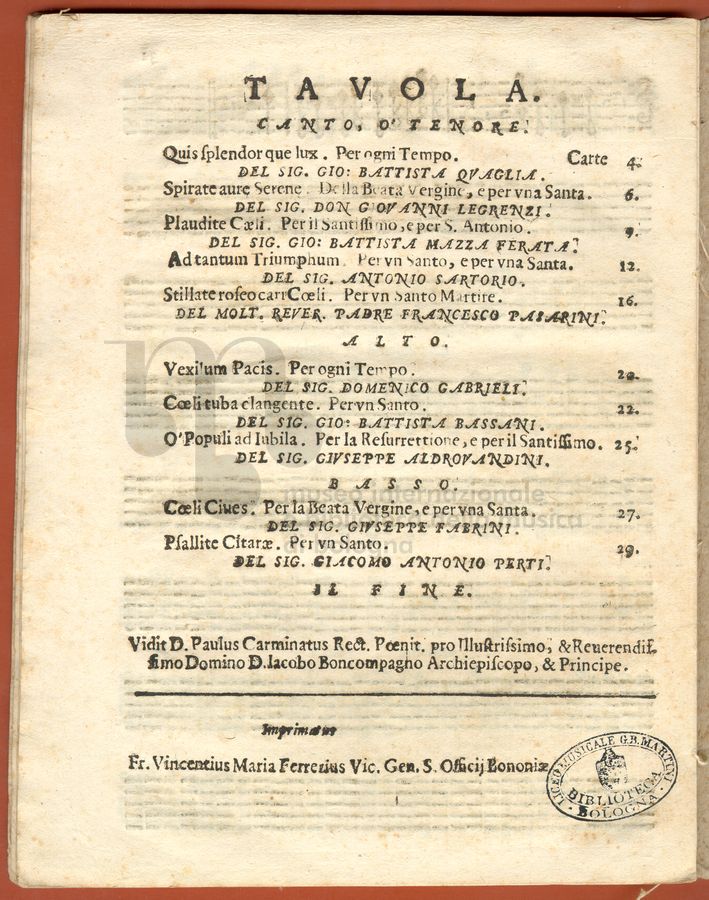 TAVOLA.
CANTO, O' TENORE.
Quis splendor que lux. Per ogni Tempo. Carte 4.
DEL SIG. GIO: BATTISTA QVAGLIA.
Spirate auræ Serene. Della Beata Vergine, e per vna Santa. 6.
DEL SIG. DON GIOVANNI LEGRENZI.
Plaudite Cœli. Per il Santissimo, e per S. Antonio. 9.
DEL SIG. GIO: BATTISTA MAZZA FERATA.
Ad tantum Triumphum. Per vn Santo, e per vna Santa. 12.
DEL SIG. ANTONIO SARTORIO.
Stillate roseo carr Cœli. Per vn Santo Martire. 16.
DEL MOLT. REVER. PADRE FRANCESCO PASARINI.
ALTO.
Vexilum Pacis. Per ogni Tempo. 20.
DEL SIG. DOMENICO GABRIELI.
Cœli tuba clangente. Per vn Santo. 22.
DEL SIG. GIO: BATTISTA BASSANI.
O' Populi ad Iubila. Per la Resurrettione, e per il Santissimo. 25.
DEL SIG. GIVSEPPE ALDROVANDINI.
BASSO.
Cœli Ciues. Per la Beata Vergine, e per vna Santa. 27.
DEL SIG. GIVSEPPE FABRINI.
Psallite Citaræ. Per vn Santo. 29.
DEL SIG. GIACOMO ANTONIO PERTI.
IL FINE.
Vidit D. Paulus Carminatus Rect. Pœnit. pro Illustrissimo, & Reuerendis-
simo Domino D. Iacobo Boncompagno Archiepiscopo, & Principe.
Imprimatur
Fr. Vincentius Maria Ferrerius Vic. Gen. S. Officij Bononiæ
LICEO MUSICALE G.B. MARTINI
BIBLIOTECA
BOLOGNA
museo internazionale
musica
bologna